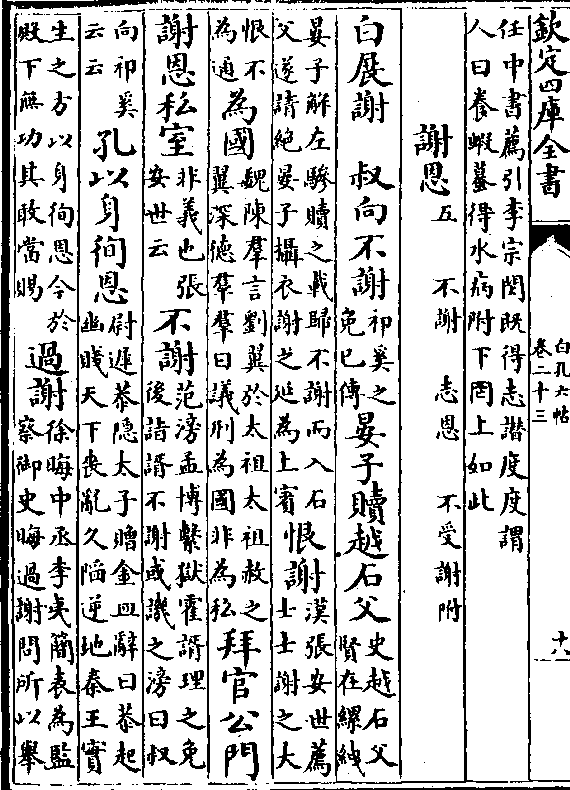 欽定四庫全書
白孔六帖
卷二十三
十八
任中書薦引李宗閔既得志譖度度謂
人曰養蝦蟇得水病附下罔上如此
謝恩 五 不謝 志恩 不受謝附
白展謝 叔向不謝 祁奚之免已傳 晏子贖越石父 史越石父賢在縲絏
晏子解左驂贖之載歸不謝而入石父遂請絶晏子攝衣謝之延為上賓 恨謝 漢張安世薦士士謝之大
恨不為通 為國 魏陳羣言劉翼於太祖太祖赦之翼深德羣羣曰議刑為國非為私 拜官公門
謝恩私室 非義也張安世云 不謝 范滂孟博繫獄霍諝理之免後詣諝不謝或譏之滂曰叔
向祁奚云云 孔以身徇恩 尉遲恭隠太子贈金皿辭曰恭起幽賤天下喪亂久陷逆地秦王實
生之方以身徇恩今於殿下無功其敢當賜 過謝 徐晦中丞李夷簡表為監察御史晦過謝問所以舉